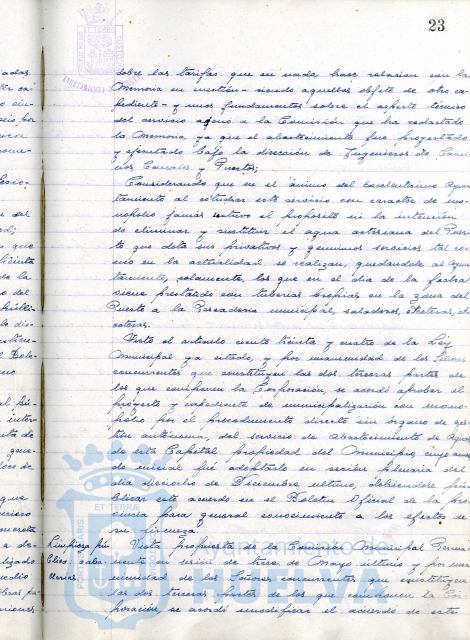 23
sobre las tarifas que en nada hace relacion con la
Memoria en cuestión - siendo aquellas objeto de otro ex-
pediente - y unos fundamentos sobre el aspecto técnico
del servicio ajeno a la Comisión que ha redactado
la Memoria, ya que el abastecimiento fué proyectado
y ejecutado bajo la dirección de Ingenieros de Cami-
nos Canales y Puertos;
Considerando que en el ánimo del Excelentísimo Ayun-
tamiento al estudiar este servicio con caracter de mo-
nopolio jamás estuvo el propósito ni la intención
de eliminar y sustituir el agua artesiana del Puer-
to que dota sus privativos y genuinos servicios tal co-
mo en la actualidad se realizan, quedandole al Ayun-
tamiento, solamente, los que en el dia de la fecha
viene prestando con tuberias propias en la zona del
Puerto a la Pescaderia municipal, saladores, etcetera, et-
cetera.
Visto el articulo ciento treinta y cuatro de la Ley
Municipal ya citado, y por unanimidad de los Señores
concurrentes que constituyen las dos terceras partes de
los que componen la Corporación, se acordó aprobar el
proyecto y expediente de municipalización con mono-
polio por el procedimiento directo sin órgano de ges-
tión autonoma, del servicio de abastecimiento de Aguas
de esta Capital propiedad del Municipio cuyo acuer-
do inicial fué adoptado en sesión plenaria del
dia dieciocho de Diciembre ultimo, debiendose pu-
blicar este acuerdo en el Boletin Oficial de la Pro-
vincia para general conocimiento a los efectos de
su firmeza.
Limpieza pú-
blica
Visto propuesta de la Comisión Municipal Perma-
nente en sesión de trece de Mayo ultimo y por una-
nimidad de los Señores concurrentes que constituyen
las dos terceras partes de los que componen la Cor-
poración, se acordó modificar el acuerdo de este
Ayuntamiento de
HUELVA